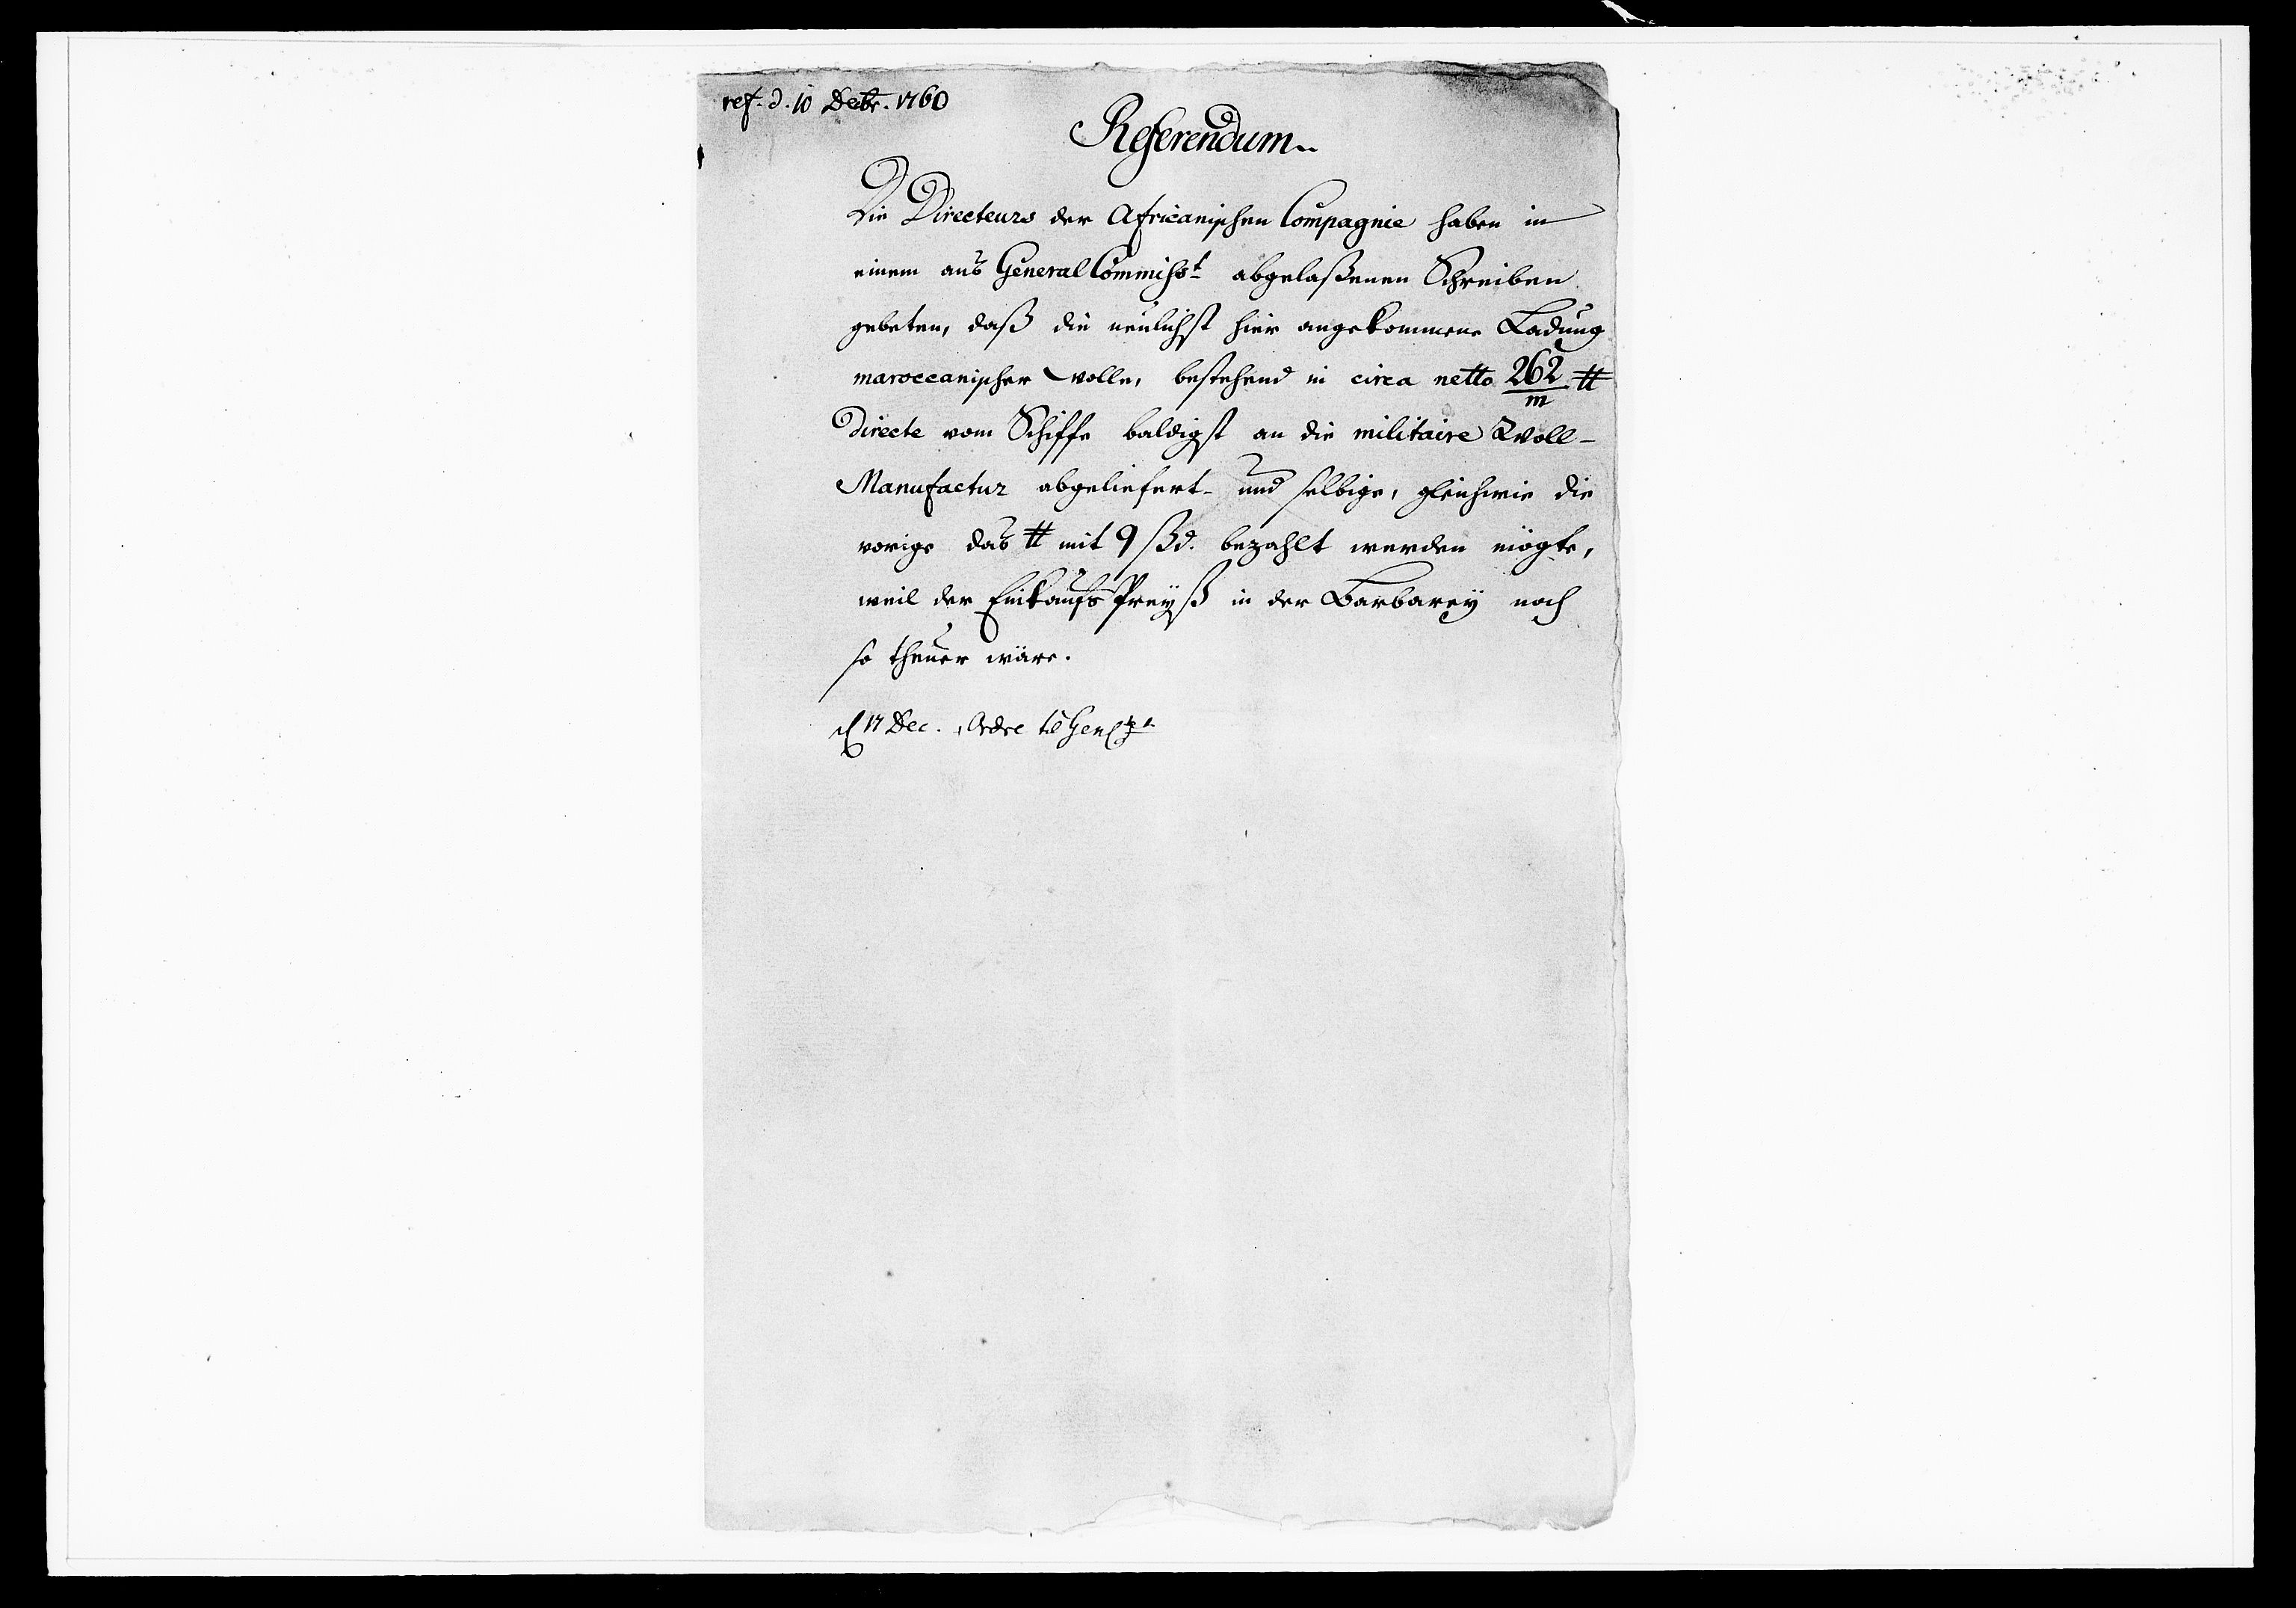 ref. d. 10 Decbr. 1760
Referendum.
Die Directeurs der Africanischen Compagnie haben in
einem ans General Commisst abgelaßenen Schreiben
gebeten, daß die neulichst hier angekommene Ladung
maroccanischer Wolle, bestehend in circa netto 262/m ℔
directe vom Schiffe baldigst an die militaire Woll-
Manufactur abgeliefert- und selbige, gleichwie die
vorige das ℔ mit 9 ßd. bezahlt werden mögte,
weil der Einkaufs Preyß in der Barbarey noch
so theuer wäre.
d 17 Dec. Ordre til